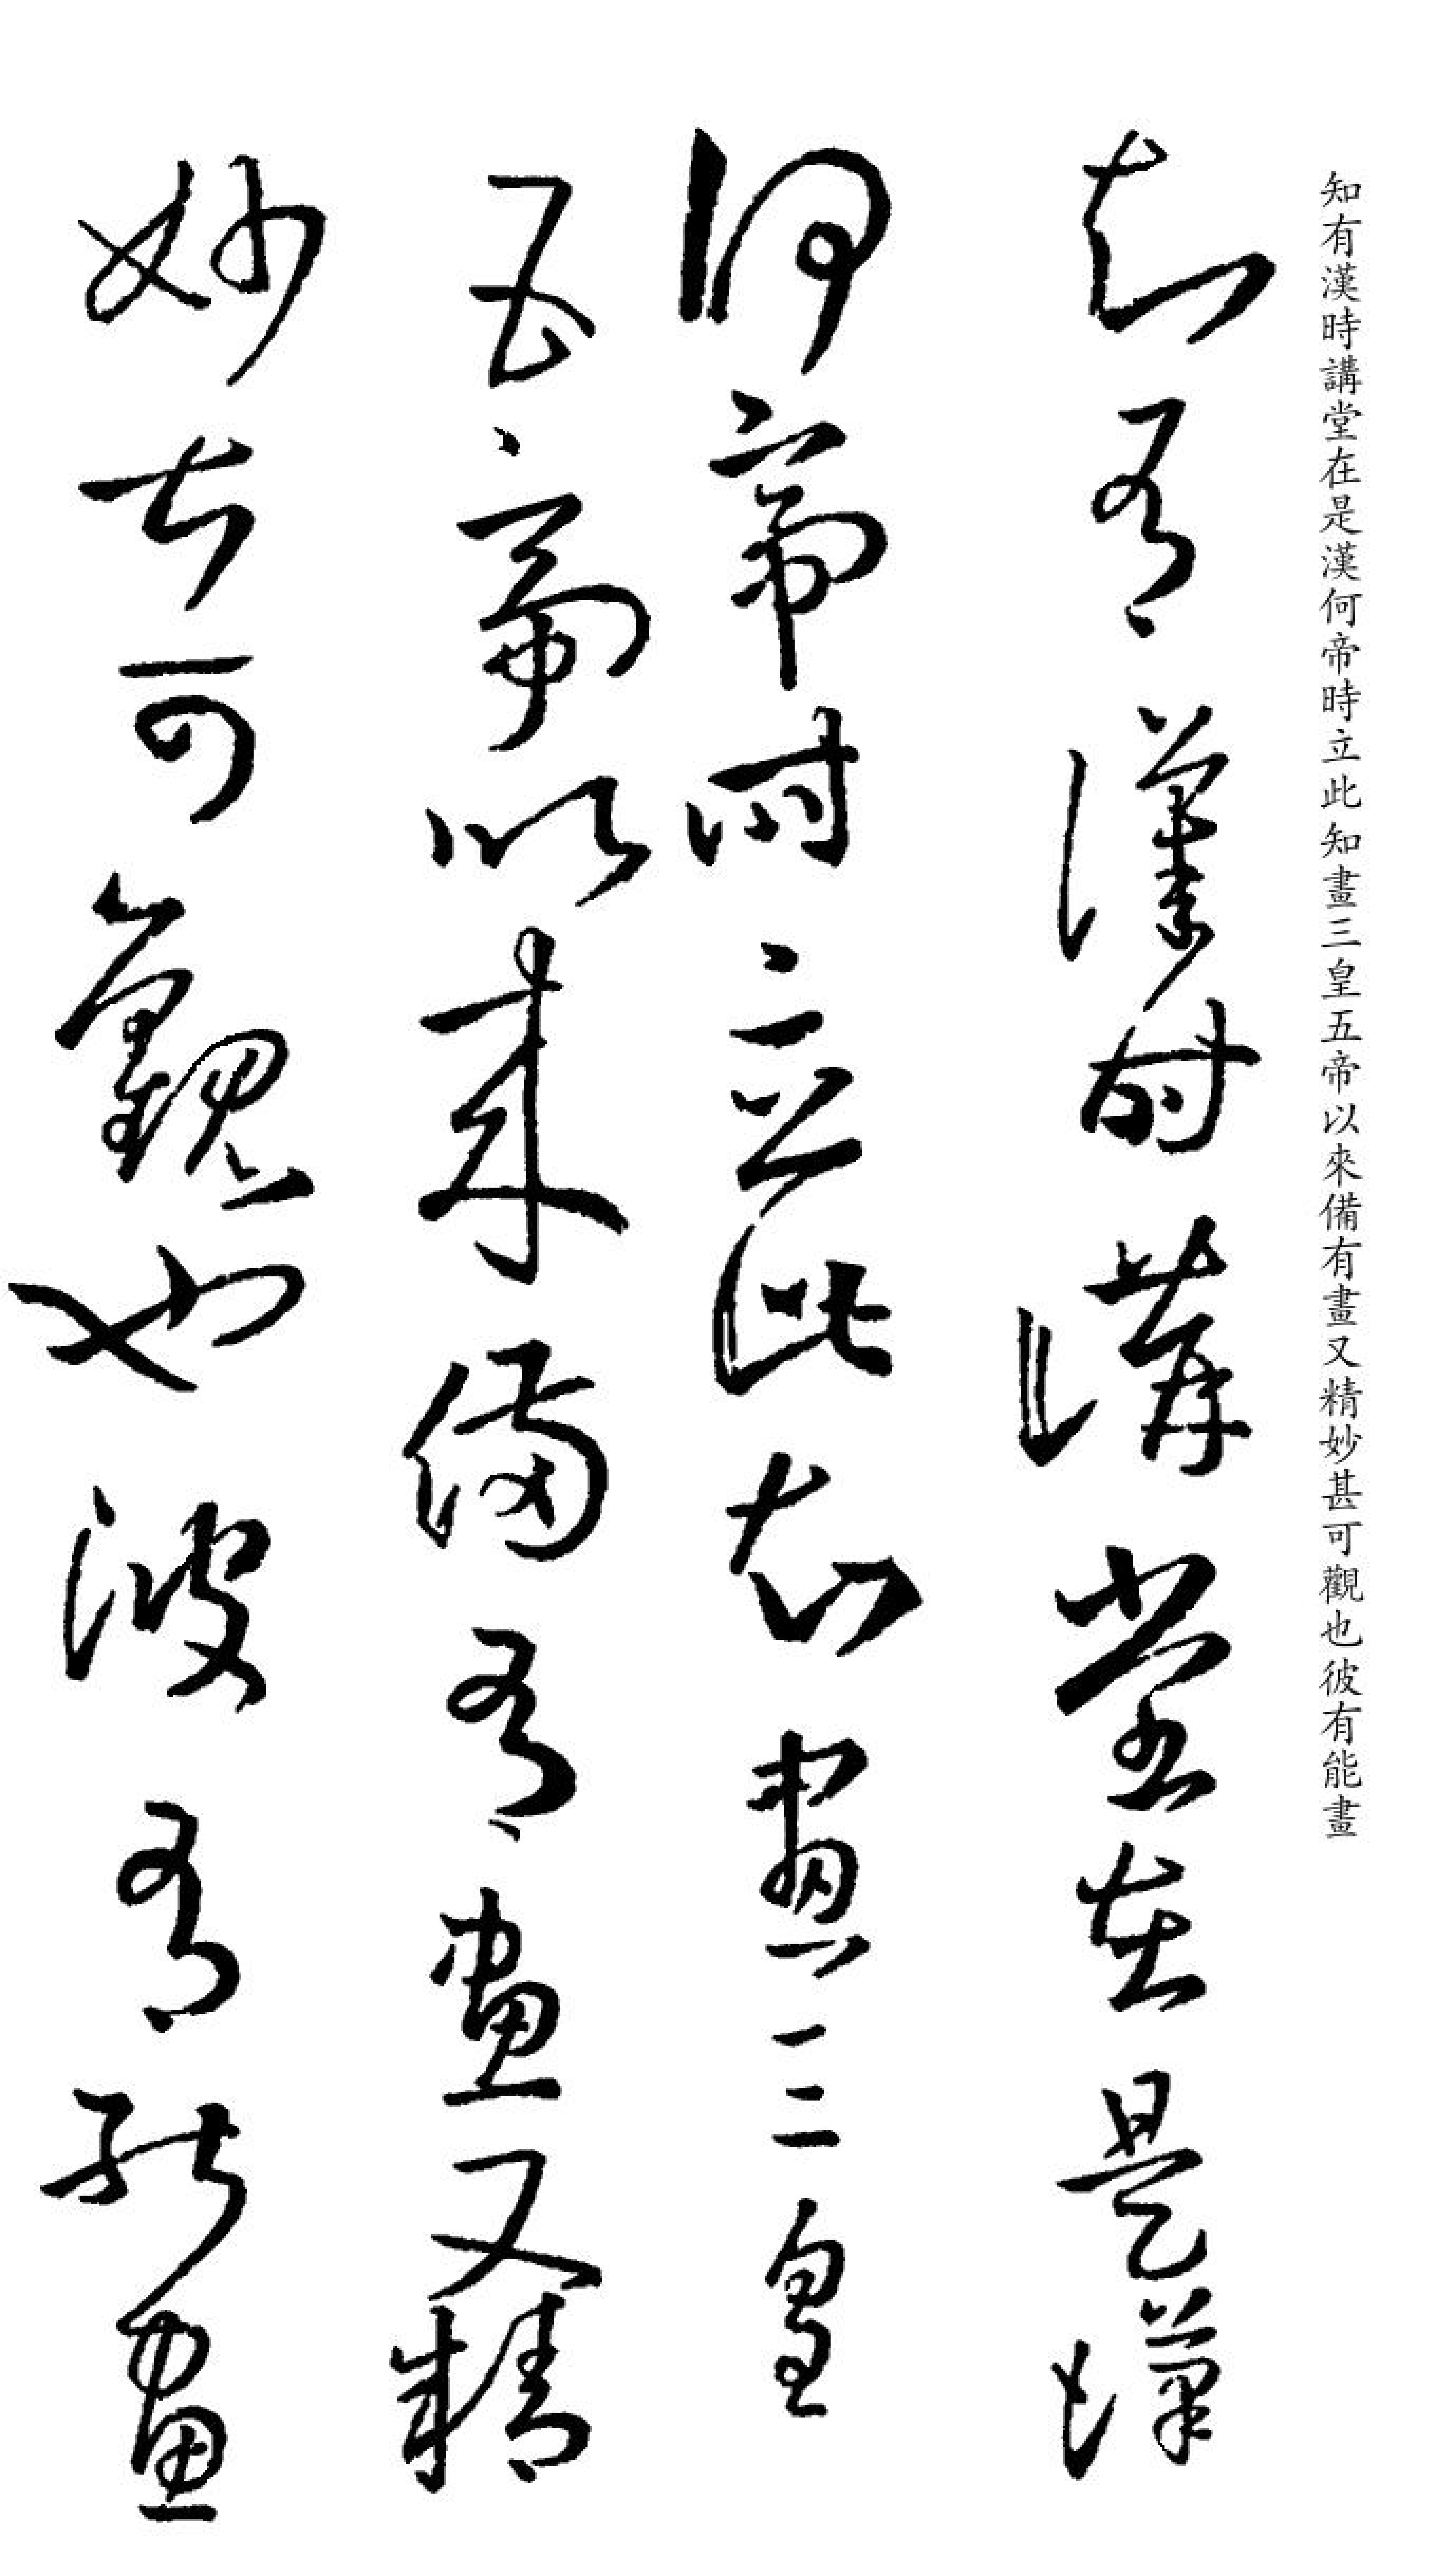 知有漢時講堂在是漢何帝時立此知畫三皇五帝以來備有畫又精妙甚可觀也彼有能畫
知有漢時講堂在是漢
何帝時立此知畫三皇
五帝以來備有畫又精
妙甚可觀也彼有能畫